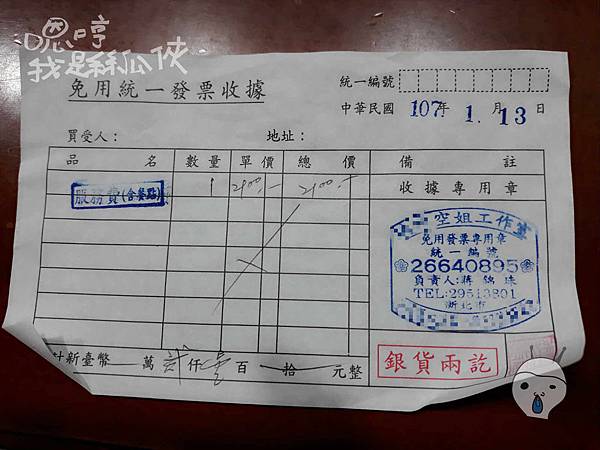 嗯哼
我是絲瓜俠
免用統一發票收據
統一編號
中華民國 107年 1.月 13日
買受人： 地址：
品名 數量 單價 總價 備註
服務費(含餐點) 1 2100.- 2100.- 收據專用章
空姐工作室
免用發票專用章
統一編號
26640895
負責人:蔣錦珠
TEL:29513801
新北市
計新臺幣 萬 貳仟 壹百 拾 元整
銀貨兩訖